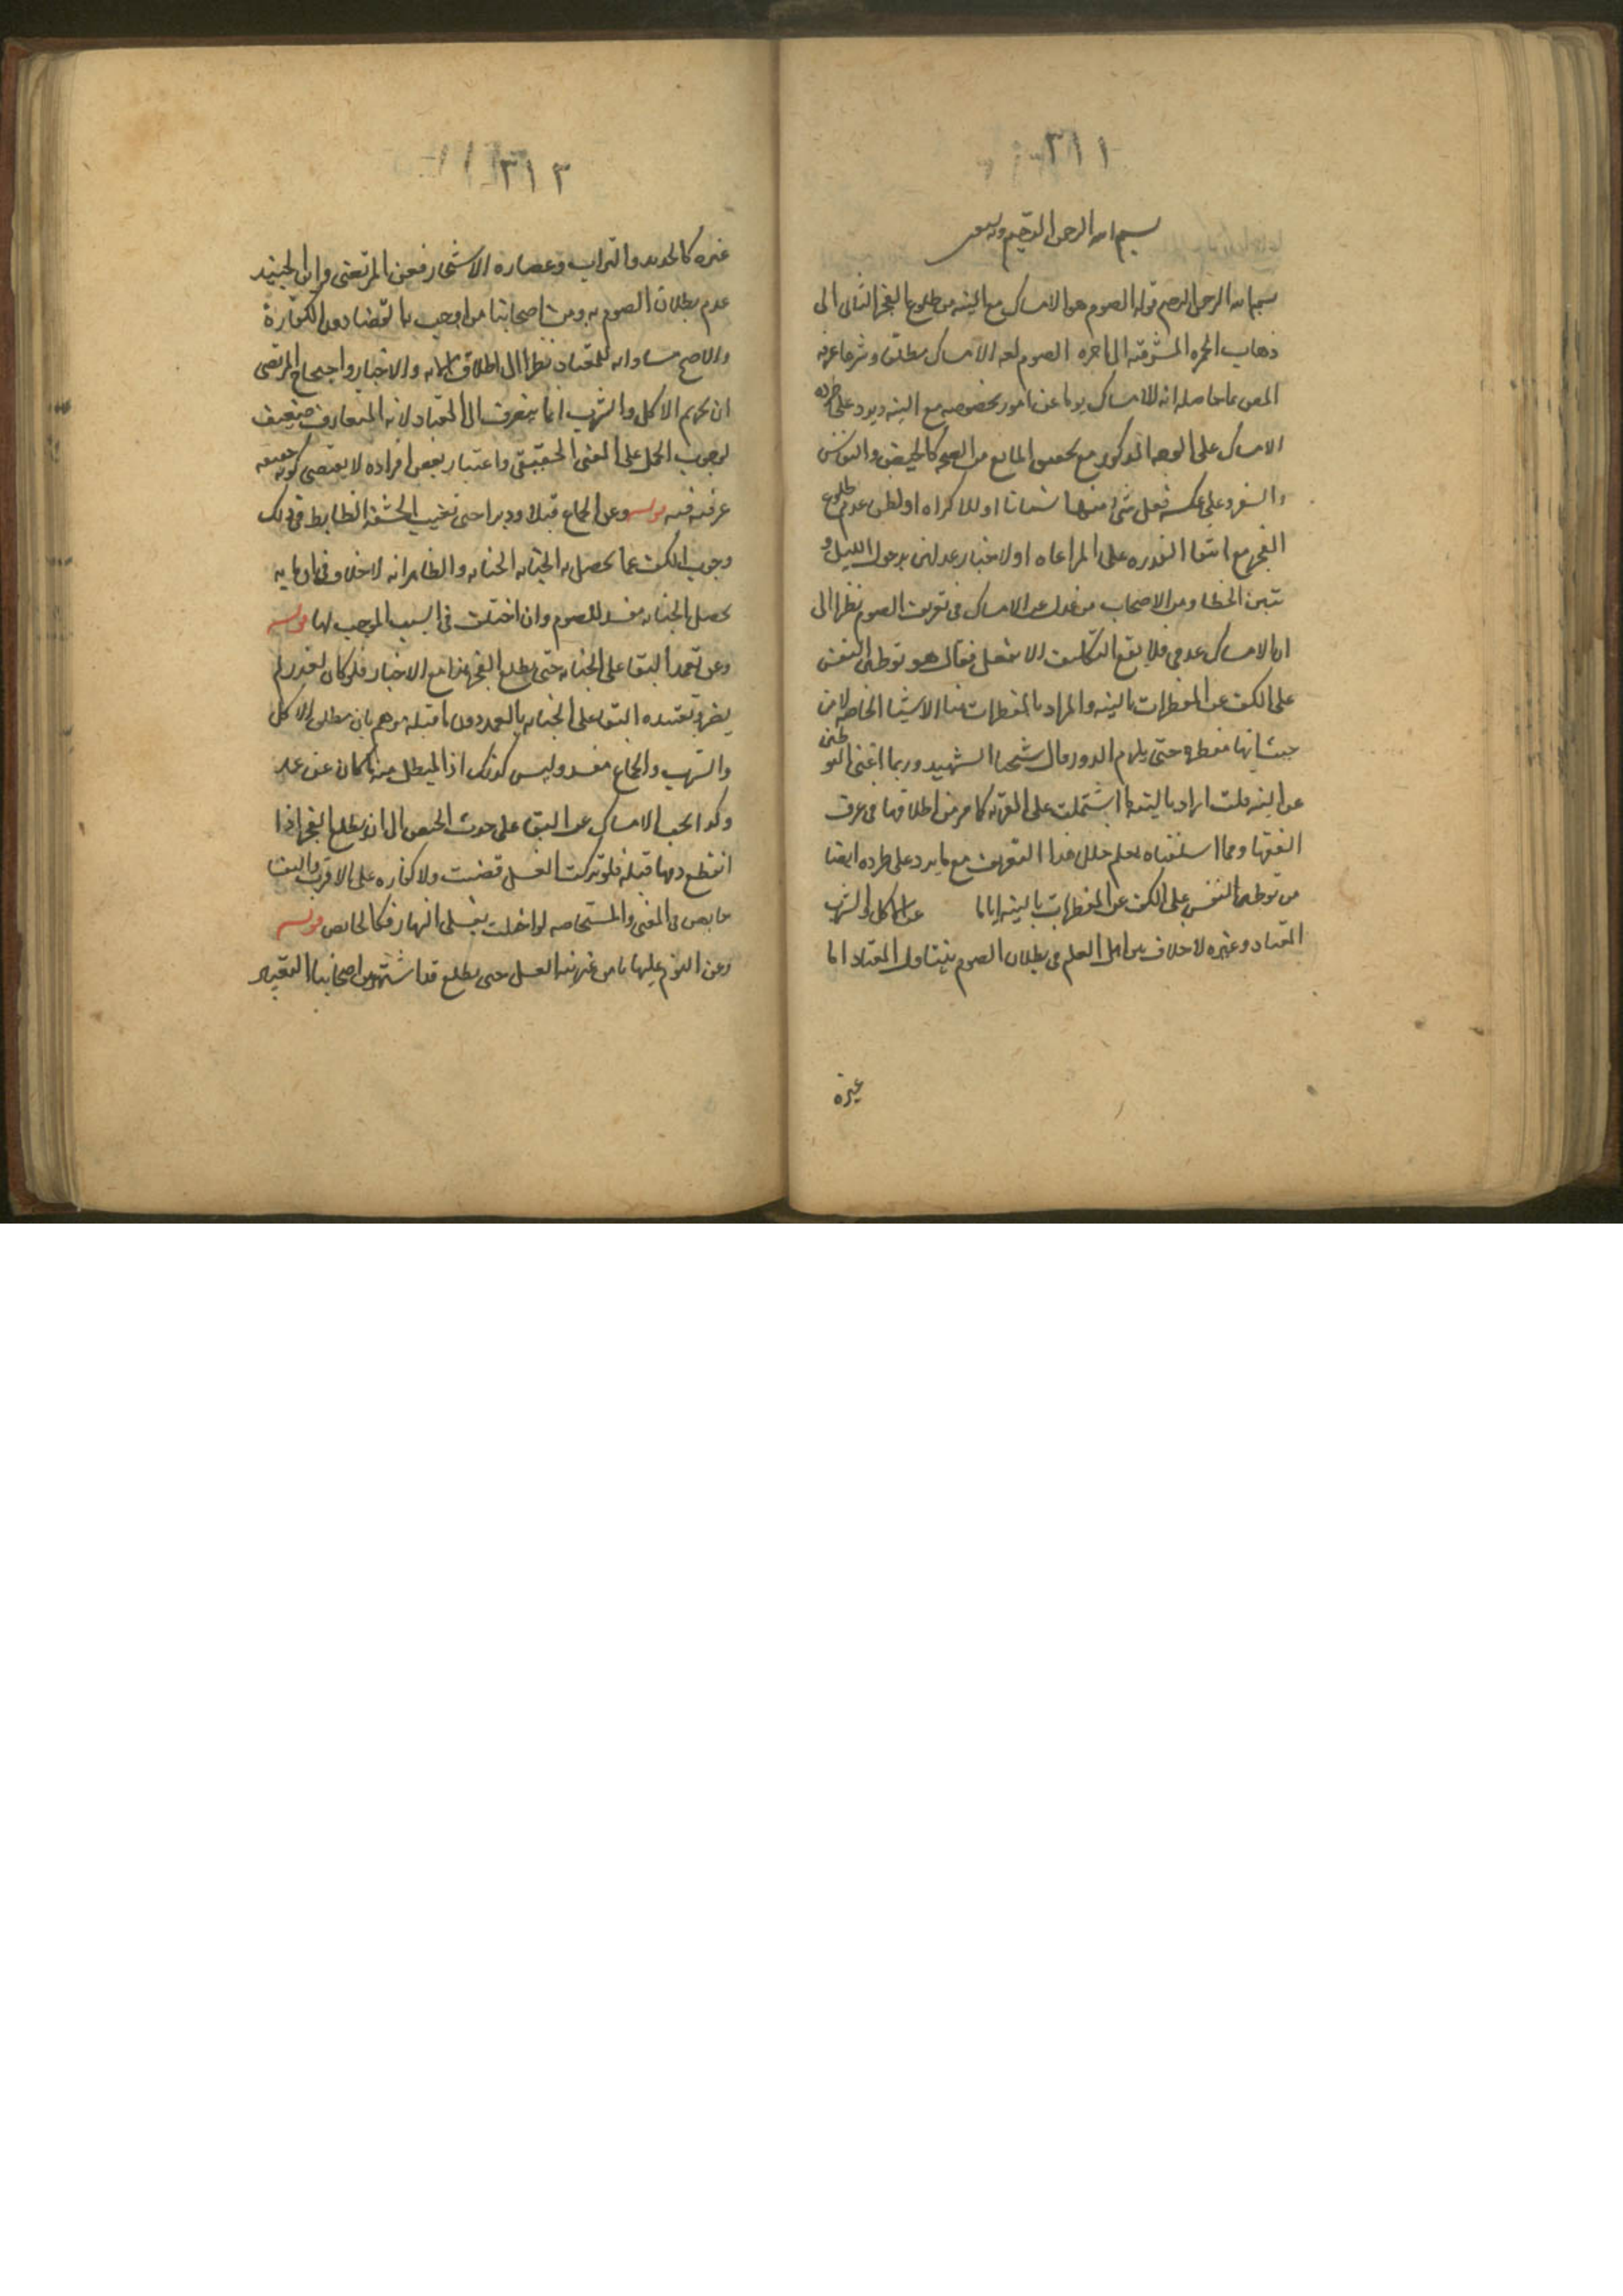 ٣١١
بسم الله الرحمن الرحيم وبه
بسم الله الرحمن الرحيم قوله الصوم هو الامساك مع النيه من طلوع الفجر الثانى الى
ذهاب الحمره المشرقيه الى اخره الصوم لغه الامساك مطلقا وشرعا عرفه
المص بما حاصله انه الامساك يوما عن امور مخصوصه مع النيه ويرد على طرده
الامساك على الوجه المذكور مع تحقق المانع من الصحه كالحيض والنفاس
والسفر وعلى عكسه فعل شى منها نسيانا او للاكراه او لظن عدم طلوع
الفجر مع انتفا القدره على المراعاه او لاخبار عدلين بدخول الليل و
تبين الخطا ومن الاصحاب من عدل عن الامساك فى تعريف الصوم نظرا الى
ان الامساك عدمى فلا يقع التكليف الا بفعل فقال هو توطين النفس
على الكف عن المفطرات بالنيه والمراد بالمفطرات هنا الاشيا الخاصه لا من
حيث انها مفطره حتى يلزم الدور قال شيخنا الشهيد وربما اغنى التوطين
عن النيه قلت اراد بالنيه ما اشتملت على القربه كما مر من اطلاقها فى عرف
الفقها ومما اسلفناه يعلم خلل هذا التعريف مع ما يرد على طرده ايضا
من توطين النفس على الكف عن المفطرات بالنيه اياما عن الاكل والشرب
المعتاد وغيره لا خلاف بين اهل العلم فى بطلان الصوم بتناول المعتاد اما
غيره
٣١٢
غيره كالحديد والتراب وعصاره الاشجار فعن المرتضى وابن الجنيد
عدم بطلان الصوم به ومن اصحابنا من اوجب به القضا دون الكفارة
والاصح مساواته للمعتاد نظرا الى اطلاق الايه والاخبار واحتجاج المرتضى
ان تحريم الاكل والشرب انما ينصرف الى المعتاد لانه المتعارف ضعيف
لوجوب الحمل على المعنى الحقيقى واعتبار بعض افراده لا يقتضى كونه حقيقه
عرفيه فيه قوله وعن الجماع قبلا ودبرا حتى تغيب الحشفه الضابط فى ذلك
وجوب الكف عما يحصل به الجنابه والظاهر انه لا خلاف فى ان ما به
تحصل الجنابه مفسد للصوم وان اختلف فى السبب الموجب لها قوله
وعن تعمد البقا على الجنابه حتى يطلع الفجر هذا مع الاختيار فلو كان لعذر لم
يضر وتقييده البقا على الجنابه بالتعمد دون ما قبله موهم بان مطلق الاكل
والشرب والجماع مفسد وليس كذلك اذ المبطل منه ما كان عن عمد
وكذا يجب الامساك عن البقا على حدث الحيض الى ان يطلع الفجر اذا
انقطع دمها قبله فلو تركت الغسل قضت ولا كفاره على الاقرب والنفسا
حايض فى المعنى والمستحاضه لو اخلت بغسلى النهار فكالحايض قوله
وعن النوم عليها من غير نيه الغسل حتى يطلع قد اشتهر بين اصحابنا التقييد